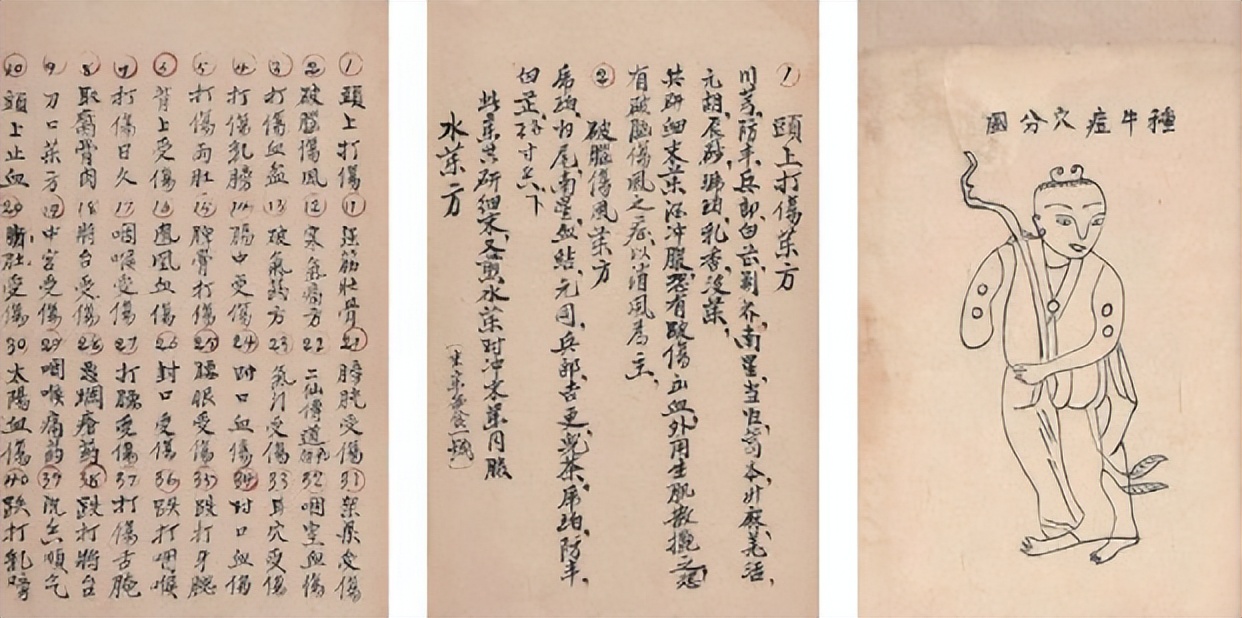 1 頭上打傷 11 強筋壯骨 21 膀胱受傷 31 架梁受傷
2 破腦傷風 12 寒氣痛方 22 二仙傳道 32 咽空血傷
3 打傷血盆 13 破氣药方 23 氣门受傷 33 耳穴受傷
4 打傷乳膀 14 腸中受傷 24 對口血傷 34 對口血傷
5 打傷兩肚 15 脾骨打傷 25 腰眼受傷 35 跌打牙腮
6 背上受傷 16 鳳凰血傷 26 封口受傷 36 跌打咽喉
7 打傷日久 17 咽喉受傷 27 打腰受傷 37 打傷舌腌
8 取腐骨肉 18 將台受傷 28 瘡药 38 跌打將台
9 刀口藥方 19 中宮受傷 29 咽喉痛药 39 順气
10 頭上止血 20 肚受傷 30 太陽血傷 40 跌打乳膀
1 頭上打傷葯方
川芎、防丰、兵郎、白芷、荆芥、南星、当归、藁本、升麻、羌活、
元胡、辰砂、琥珀、乳香、没葯、
共研细末葯酒冲服、恐有破傷出血、外用生肌散摻之、恐
有破腦傷風之症、以消風為主、
2 破腦傷風葯方
虎珀、归尾、南星、血結、元胡、兵郎、吉更、兒茶、虎珀、防丰、
白芷、
此葯共研細末、又煎水葯时冲末葯同服
水葯方
種牛痘穴分圖